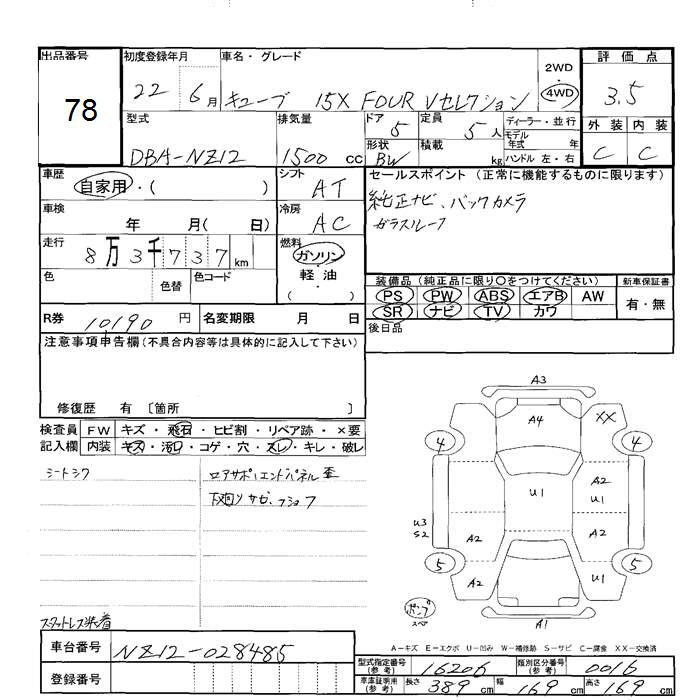 出品番号 初度登録年月 車名・グレード 評価点
78
22 6月 キューブ 15X FOUR Vセレクション
2WD・4WD
3.5
型式 排気量 ドア 定員 ディーラー・並行 外装 内装
DBA-NZ12 1500 cc 5 5人
モデル年式 年
形状 積載 kg ハンドル 左・右
BW
C C
車歴 自家用・( )
シフト AT
セールスポイント(正常に機能するものに限ります)
純正ナビ、バックカメラ
ガラスルーフ
車検 年 月( 日)
冷房 AC
走行 8万3千737km
燃料 ガソリン・軽油 ( )
色 色替 色コード
装備品(純正品に限り○をつけてください) 新車保証書
PS PW ABS エアB AW
SR ナビ TV カワ
有・無
R券 10190 円 名変期限 月 日
後日品
注意事項申告欄(不具合内容等は具体的に記入して下さい)
修復歴 有 〔箇所 〕
検査員 FW キズ・飛石・ヒビ割・リペア跡・×要
記入欄 内装 キズ・汚レ・コゲ・穴・スレ・キレ・破レ
シートシワ
ロアサポ、エンドパネル歪
下廻りサビ、フショク
A3
A4
XX
4 4
A2
U1
U1
U3
S2
A2 A2
5 5
A2 U1
A1
ポンプ
スペア
A-キズ E-エクボ U-凹み W-補修跡 S-サビ C-腐食 XX-交換済
車台番号 NZ12-028485
登録番号
型式指定番号(参考) 16206 類別区分番号(参考) 0016
車庫証明用(参考) 長さ 389cm 幅 169cm 高さ 169cm